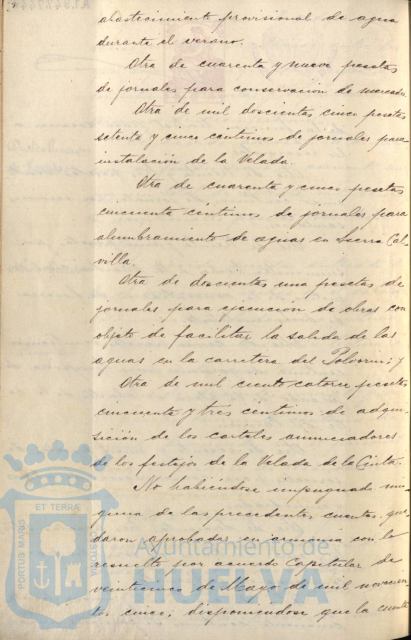 abastecimiento provisional de agua
durante el verano.
Otra de cuarenta y nueve pesetas
de jornales para conservacion de mercados
Otra de mil doscientas cinco pesetas
setenta y cinco céntimos de jornales para
instalación de la Velada.
Otra de cuarenta y cinco pesetas
cincuenta céntimos de jornales para
alumbramiento de aguas en Sierra Cal-
villa.
Otra de doscientas una pesetas de
jornales para ejecucion de obras con
objeto de facilitar la salida de las
aguas en la carretera del Polvorin; y
Otra de mil ciento catorce pesetas
cincuenta y tres céntimos de adqui-
sición de los carteles anunciadores
de los festejos de la Velada de la Cinta.
No habiéndose impugnado nin-
guna de las precedentes cuentas, que-
daron aprobadas en armonia con lo
resuelto por acuerdo Capitular de
veinticinco de Mayo de mil novecien-
tos cinco, disponiendose que la cuenta
PORTUS MARIS
ET TERRÆ
CUSTODIA
Ayuntamiento de
HUELVA